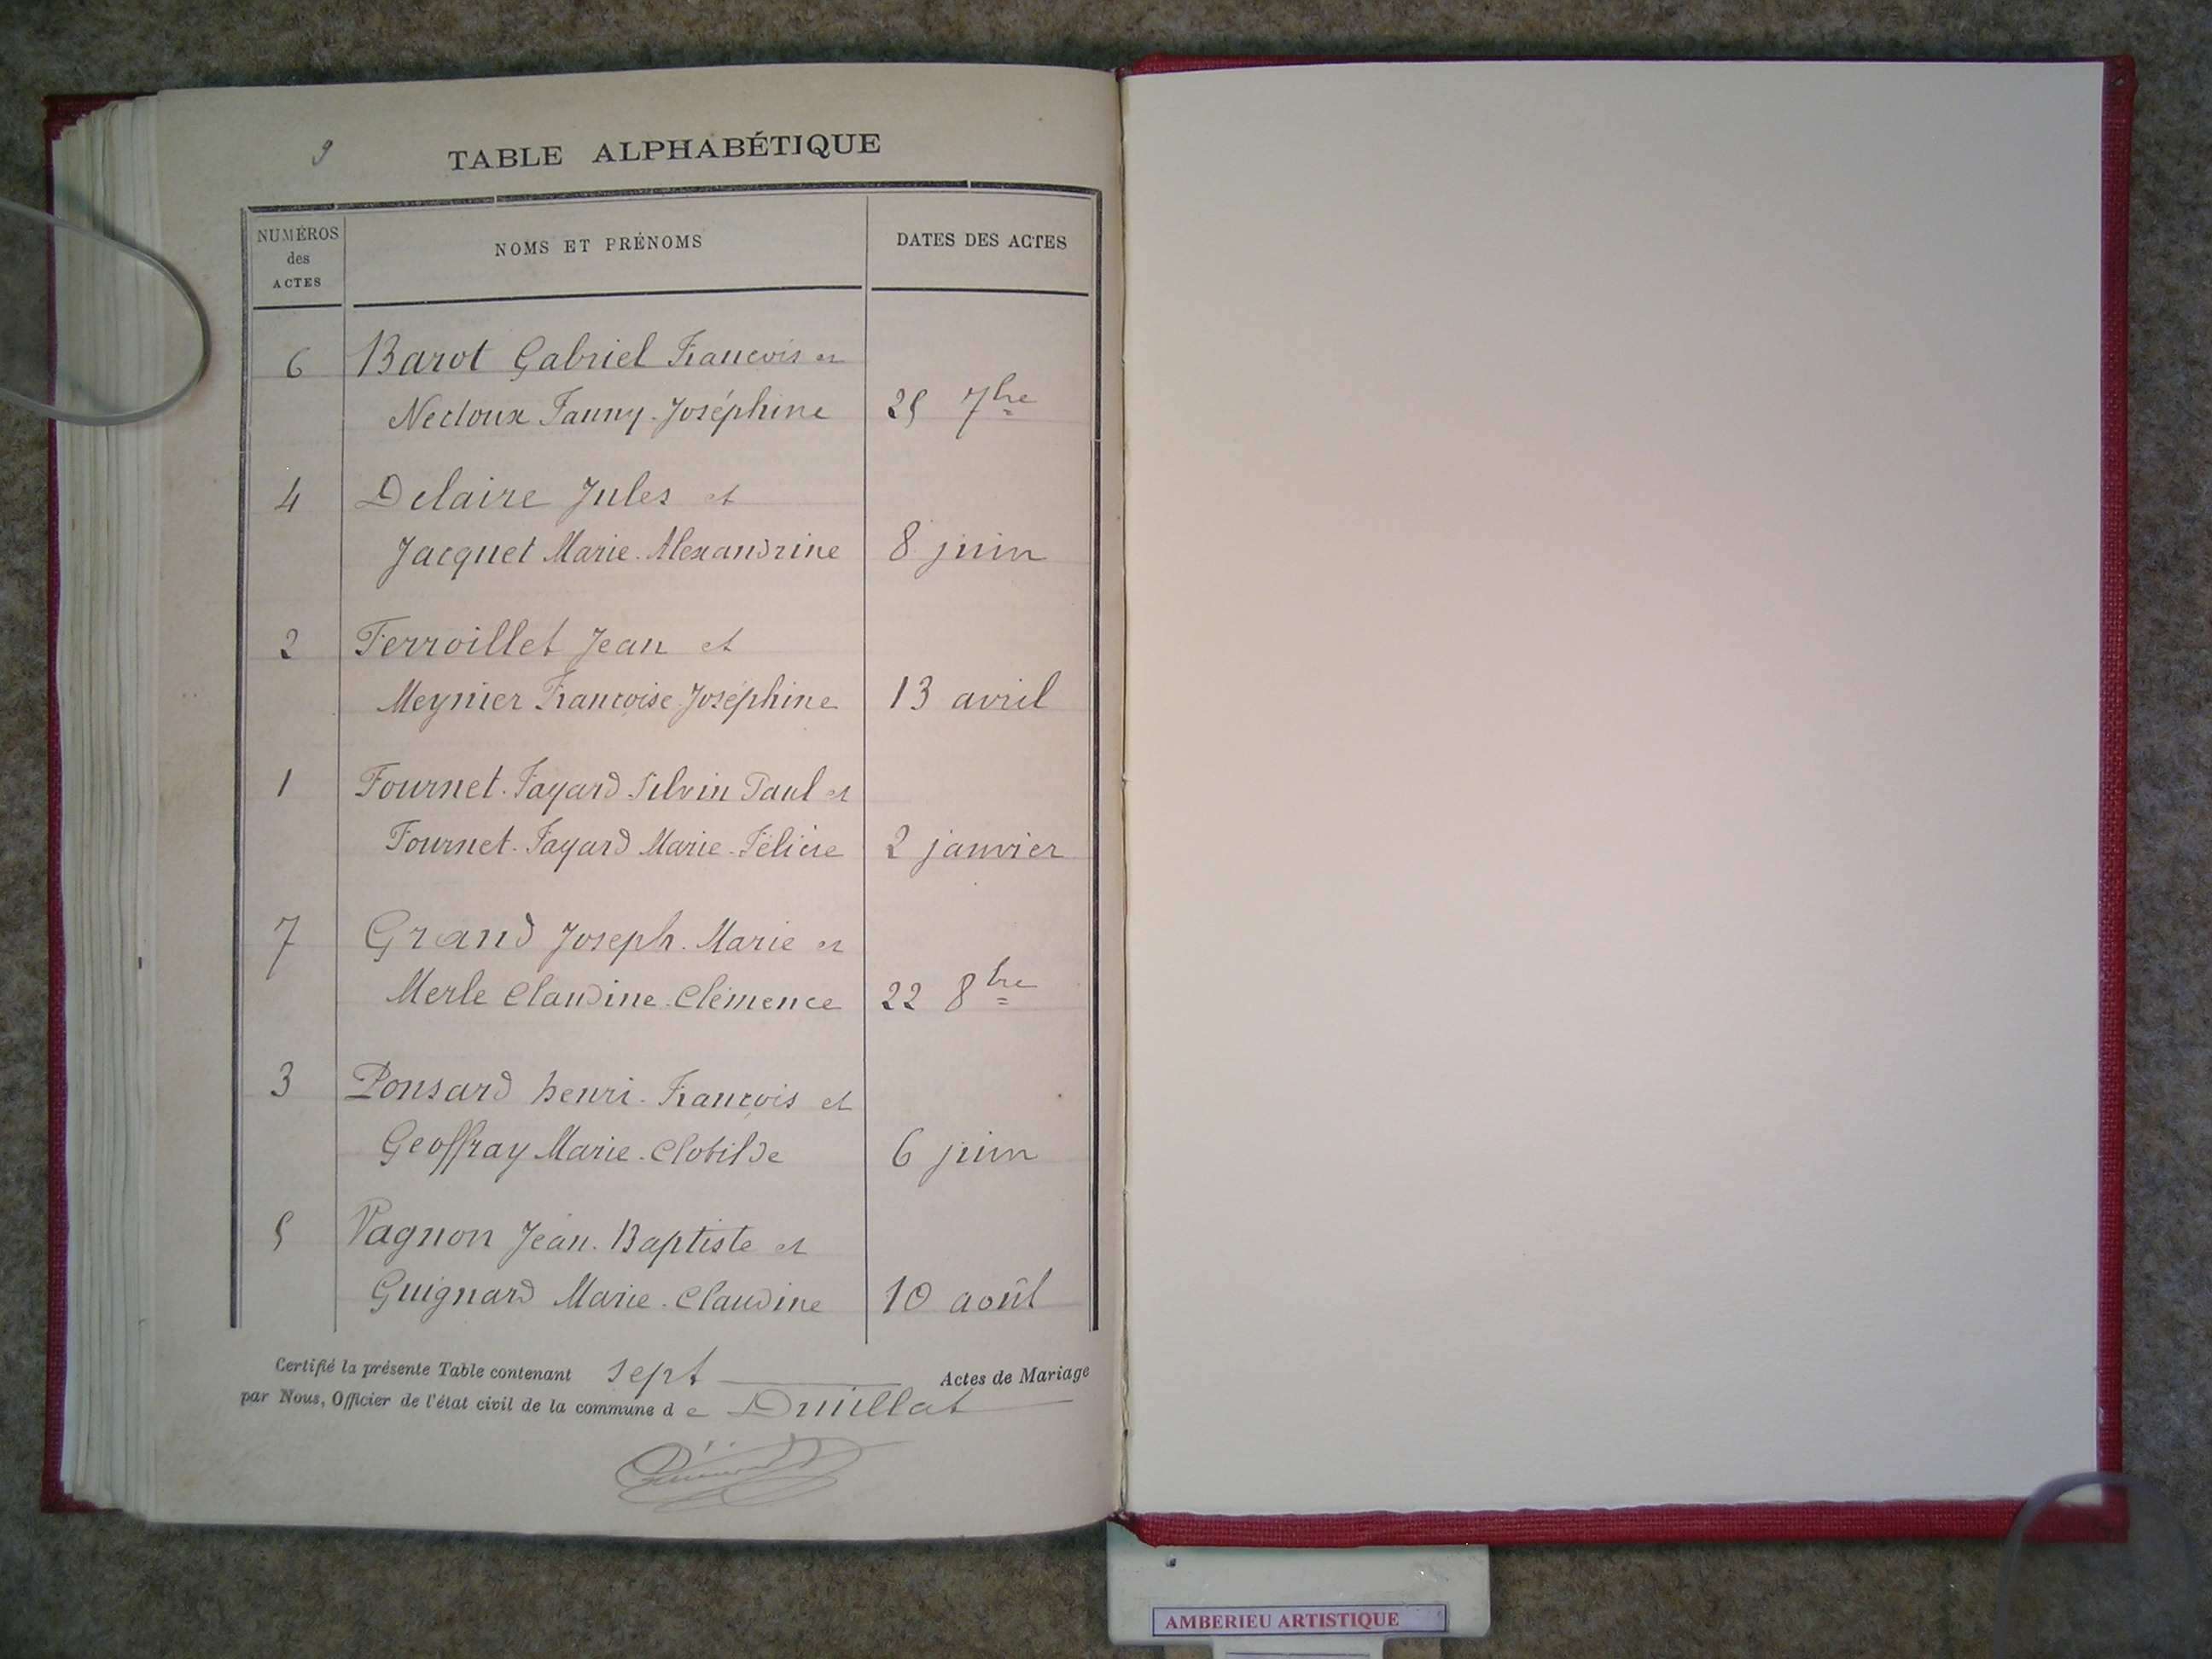 9
TABLE ALPHABÉTIQUE
NUMÉROS des ACTES
NOMS ET PRÉNOMS
DATES DES ACTES
6 Barot Gabriel François et
Necloux Fanny-Joséphine 25 7bre
4 Delaire Jules et
Jacquet Marie-Alexandrine 8 juin
2 Ferroillet Jean et
Meynier Françoise Joséphine 13 avril
1 Fournet-Fayard Silvin Paul et
Fournet-Fayard Marie-Félicie 2 janvier
7 Grand Joseph-Marie et
Merle Claudine-Clémence 22 8bre
3 Ponsard henri-François et
Geoffray Marie-Clotilde 6 juin
5 Vagnon Jean-Baptiste et
Guignard Marie-Claudine 10 août
Certifié la présente Table contenant sept Actes de Mariage
par Nous, Officier de l'état civil de la commune de Druillat
AMBERIEU ARTISTIQUE